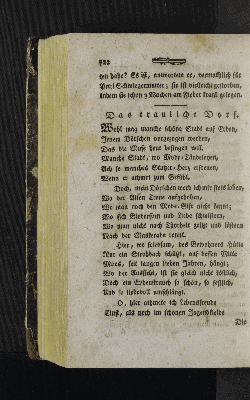 122
ihn habe? Es ist, antwortete er, vermuthlich für
Zwei Schwiegermutter; sie ist vielleicht gestorben,
indem sie schon 3 Wochen am Fieber krank gelegen.
Das trauliche Dorf.
Wohl mag manche schöne Stadt auf Erden,
Jenem Dörfchen vorgezogen werden,
Das die Muse heut besingen will.
Manche Stadt, wo Mode-Tändeleyen,
Ach so manches Stutzer-Herz erfreuen,
Wenn er athmet zum Gefühl.
Doch, mein Dörfchen werd ich stets loben,
Wo der Alten Treue aufgehoben,
Wo man noch der Mode-Gift nicht kennt;
Wo sich Biedersinn und Liebe schwistern,
Wo man nicht nach Thorheit geizt und lüstern
Nach der Maskerade rennt.
Hier, wo seltsam, des Bewohners Hütte
Nur ein Strohdach schützt, auf dessen Mitte
Moos, seit langen lieben Jahren, hängt;
Wo der Ansicht, ist sie gleich nicht köstlich,
Doch ein so schön, so festlich,
Und so liebevoll umschlingt.
O, hier athmete ich Lebensfreude
Einst, als noch im schönen Jugendkleide
Die